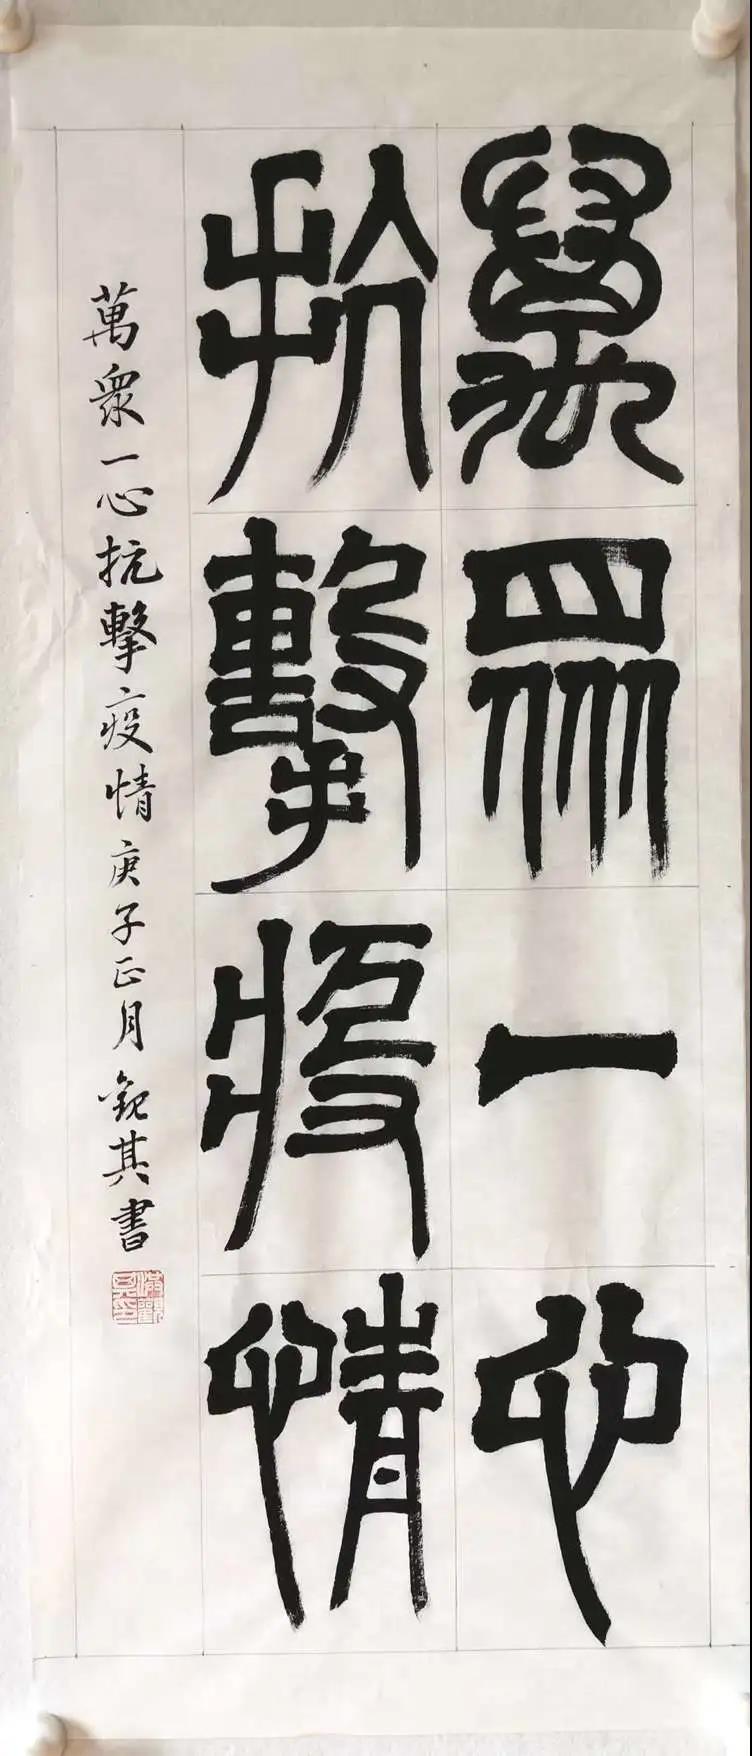 萬眾一心
抗擊疫情
萬眾一心抗擊疫情庚子正月觀其書